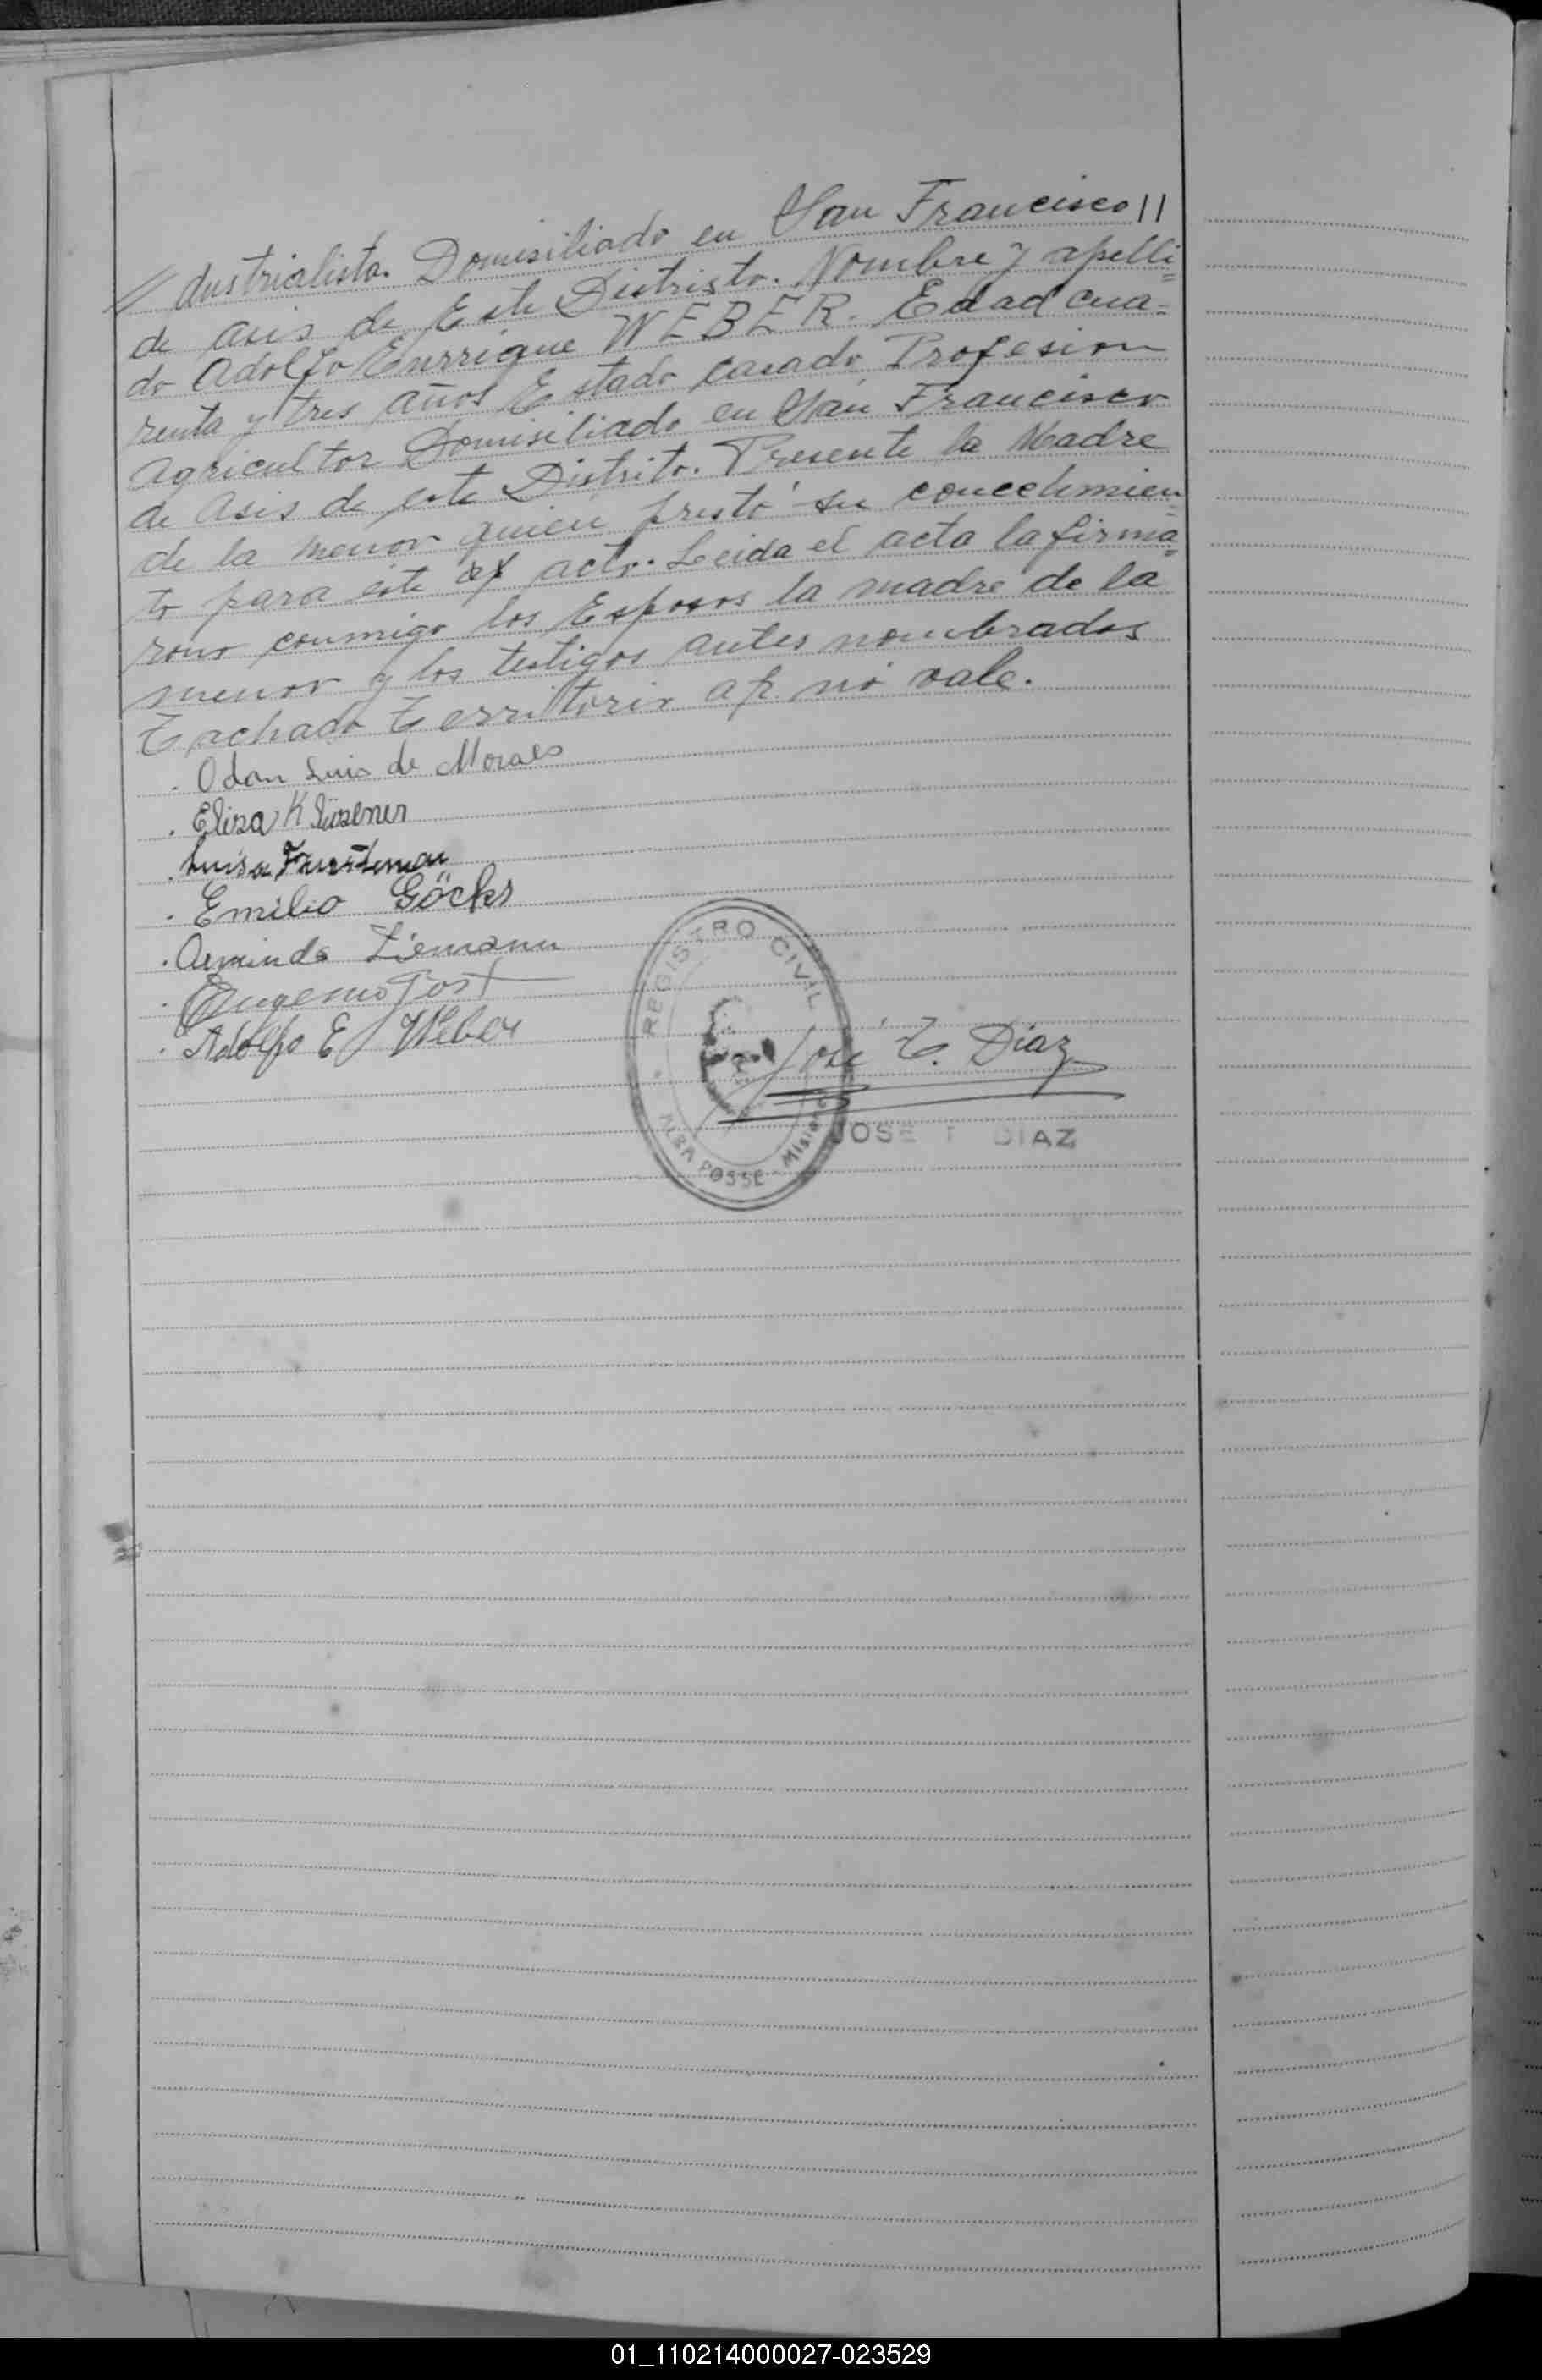 // dustrialista. Domisiliado en San Francisco //
de asis de Este Distristo. Nombre y apelli=
do Adolfo Enrrique WEBER. Edad cua=
renta y tres años Estado casado Profesion
Agricultor Domisiliado en San Francisco
de Asis de este Distrito. Presente la Madre
de la menor quien prestó su concetimien
to para este ap acto. Leida el acta la firma=
ron conmigo los Esposos la madre de la
menor y los testigos antes nombrados
Tachado Territorio ap. no vale.
. Odon Luis de Moraes
. Elisa Klüsener
. Luisa
. Emilio Göcks
. Arminda Liemann
. Eugenio Jost
. Adolfo E Weber
REGISTRO CIVIL
José T. Diaz
JOSE T DIAZ
ALBA POSSE Misiones
01_110214000027-023529